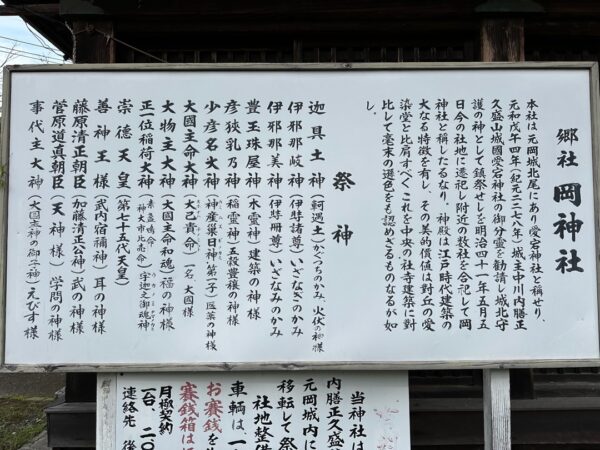 郷社 岡神社
本社は元岡城北尾にあり愛宕神社と称せり、
元和戊午四年(紀元二二七八年)城主中川内膳正
久盛山城國愛宕神社の御分霊を勧請し城北守
護の神として鎮祭せしを明治四十一年五月五
日今の社地に遷祀し附近の数社を合祀して岡
神社と称したるなり、神殿は江戸時代建築の
大なる特徴を有し、その美的価値は對丘の愛
染堂と比肩すべく、これを中央の社寺建築に對
比して毫末の遜色をも認めざるものなるが如
し。
祭神
迦具土神(軻遇土)かぐつちのかみ、火伏の神様
伊邪那岐神(伊弉諾尊)いざなぎのかみ
伊邪那美神(伊弉冊尊)いざなみのかみ
豊玉珠屋神(水霊神)建築の神様
彦狭乳乃神(稲霊神)五穀豊穣の神様
少彦名大神(神産巣日神の第二子)医薬の神様
大國主命大神(大己貴命)一名 大國様
大物主大神(大國主命和魂)福の神様
正一位稲荷大神(素盞嗚命 神大市比売命)宇迦之御魂神
崇徳天皇(第七十五代天皇)
善神王様(武内宿禰神)耳の神様
藤原清正朝臣(加藤清正公神)武の神様
菅原道真朝臣(天神様)学問の神様
事代主大神(大國主神の御子神)えびす様
当神社は
内膳正久盛
元岡城内に
移転して祭
社地整備
車輌は、一
お賽銭を
賽銭箱は
月極契約
一台、二〇
連絡先 後